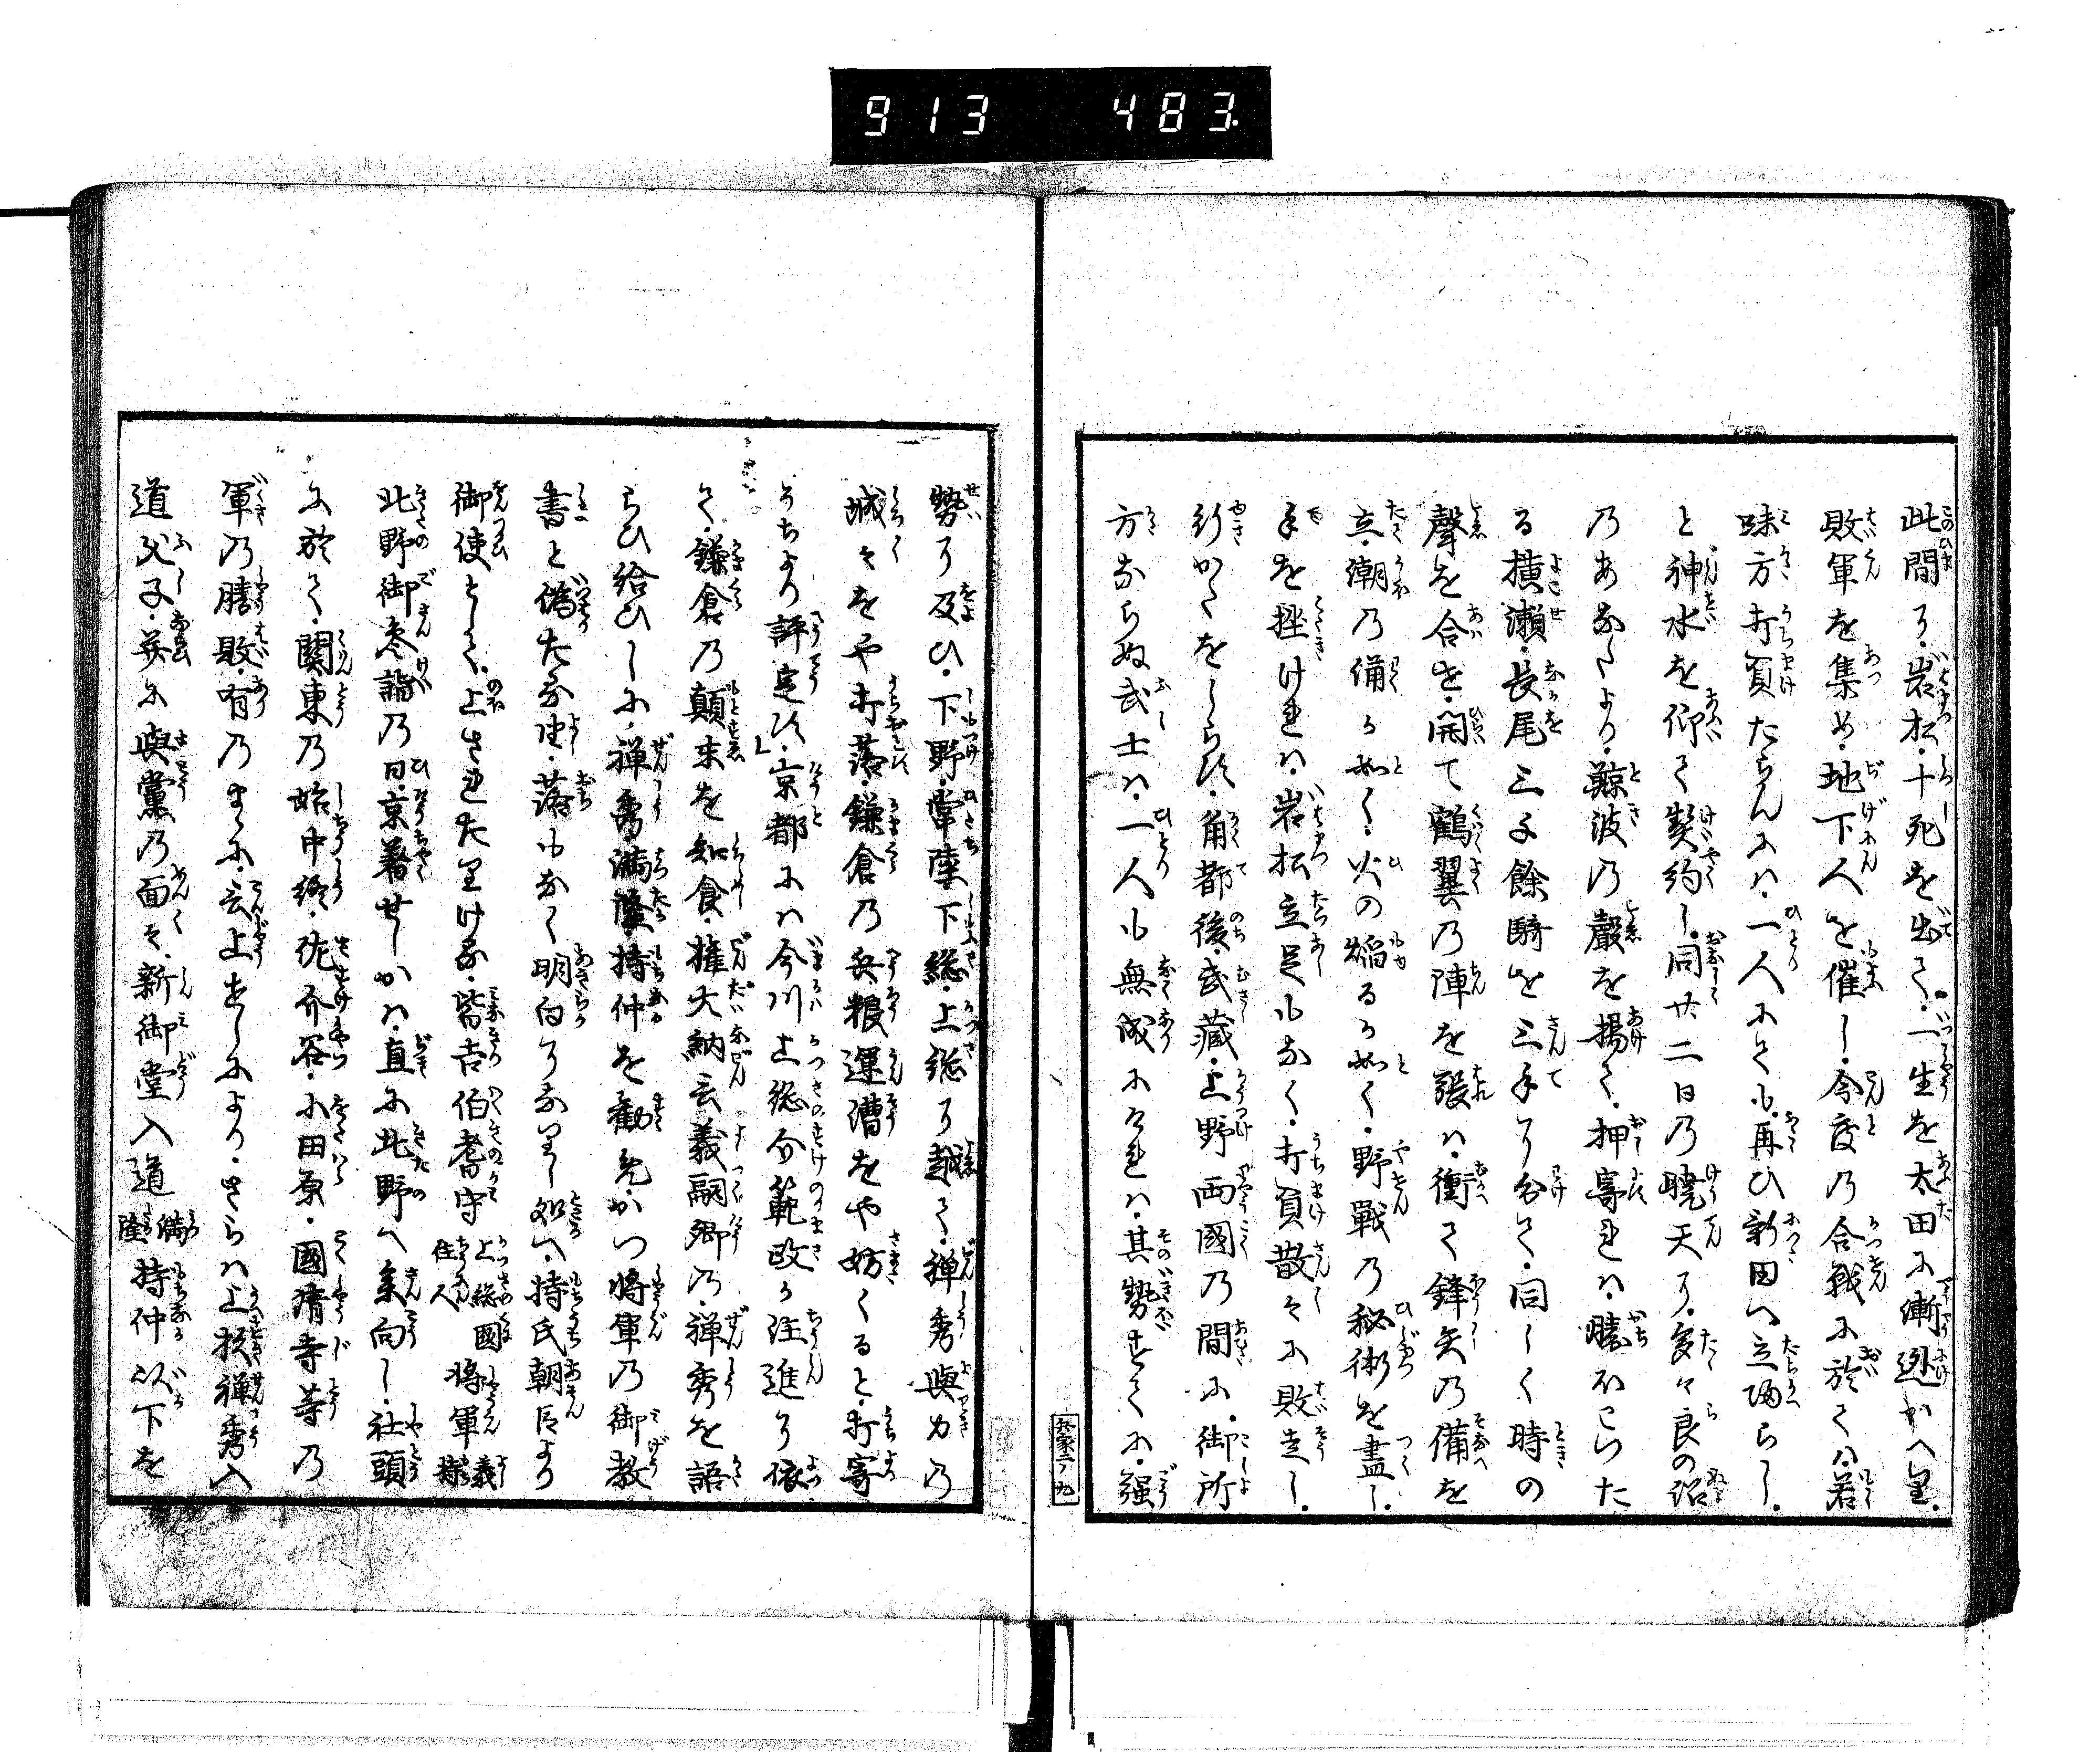 913 483
此間に岩松十死を出て一生を太田に漸遁かへり
敗軍を集め地下人を催し今度の合戦に於ては若
味方打負たらんには一人にても再ひ新田へ立帰らし
と神水を仰て契約し同廿二日の暁天に多々良の沼
のあなたより鯨波の聲を揚て押寄れは勝ほこつた
る横瀬長尾三千餘騎を三手に分て同しく時の
聲を合せ開て鶴翼の陣を張は衝て鋒矢の備を
立潮の備か如く火の焔るか如く野戰の秘術を盡し
手を挫けれは岩松立足もなく打負散々に敗走し
行かたをしらす角都後武藏上野両國の間に御所
方ならぬ武士は一人も無成にけれは其勢すてに强
勢に及ひ下野常陸下総上総に越て禅秀與力の
城々をや打落鎌倉の兵粮運漕をや妨くると打寄
うちより評定す京都には今川上総介範政か注進に依
て鎌倉の顛末を知食權大納言義嗣卿の禅秀を語
らひ給ひしに禅秀満隆持仲を勸めかつ将軍の御教
書と偽たる由落もなく明白になりし処へ持氏朝臣より
御使として上されたりける皆吉伯耆守 上総國住人 将軍 義持
北野御参詣の日京着せしかは直に北野へ参向し社頭
に於て關東の始中終佐介谷小田原國清寺等の
軍の勝敗有のまゝに言上せしにより さらは上杦禅秀入
道父子并に與黨の面々新御堂入道 満隆 持仲以下を